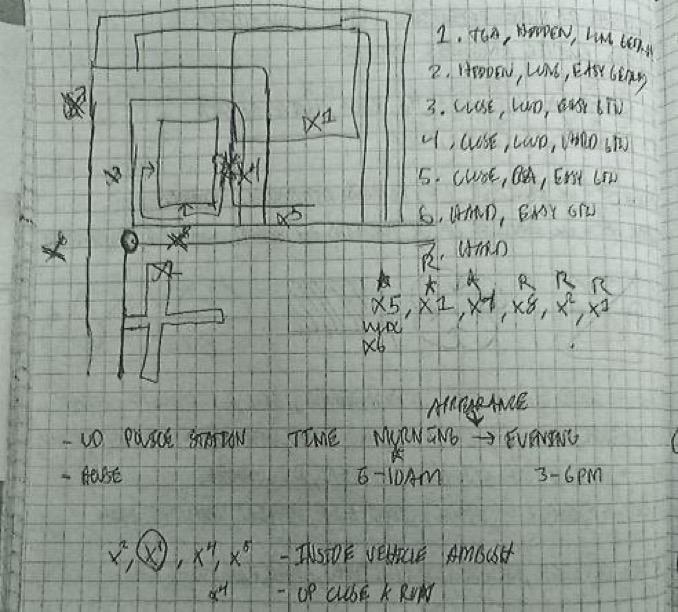 X1
X4
X5
1. TGA, HIDDEN, LNG
2. HIDDEN, LNG, EASY
3. CLOSE, LWD, EASY GTW
4, CLOSE, LWD, HARD GTW
5. CLOSE, EASY GTW
6. HARD, EASY GTW
7. HARD
R
R R R
X5, X1, X4, X8, X2, X1
X6
APPEARANCE
- UD POLICE STATION TIME MORNING → EVENING
- HOUSE 6-10AM 3-6PM
X2, X1, X4, X5 - INSIDE VEHICLE AMBUSH
X4 - UP CLOSE & RUN